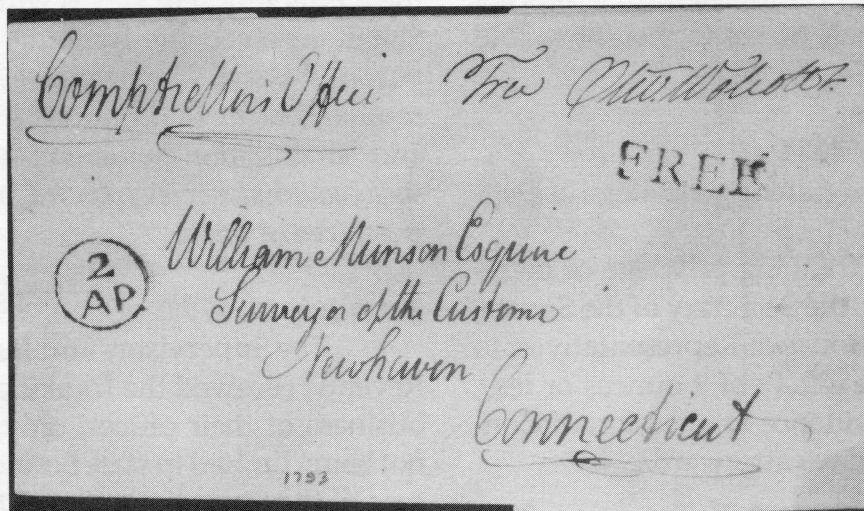 Comptrollers Office Free Oliv. Wolcott Jr.
FREE
2
AP
William Munson Esquire
Surveyor of the Customs
Newhaven
Connecticut
1793